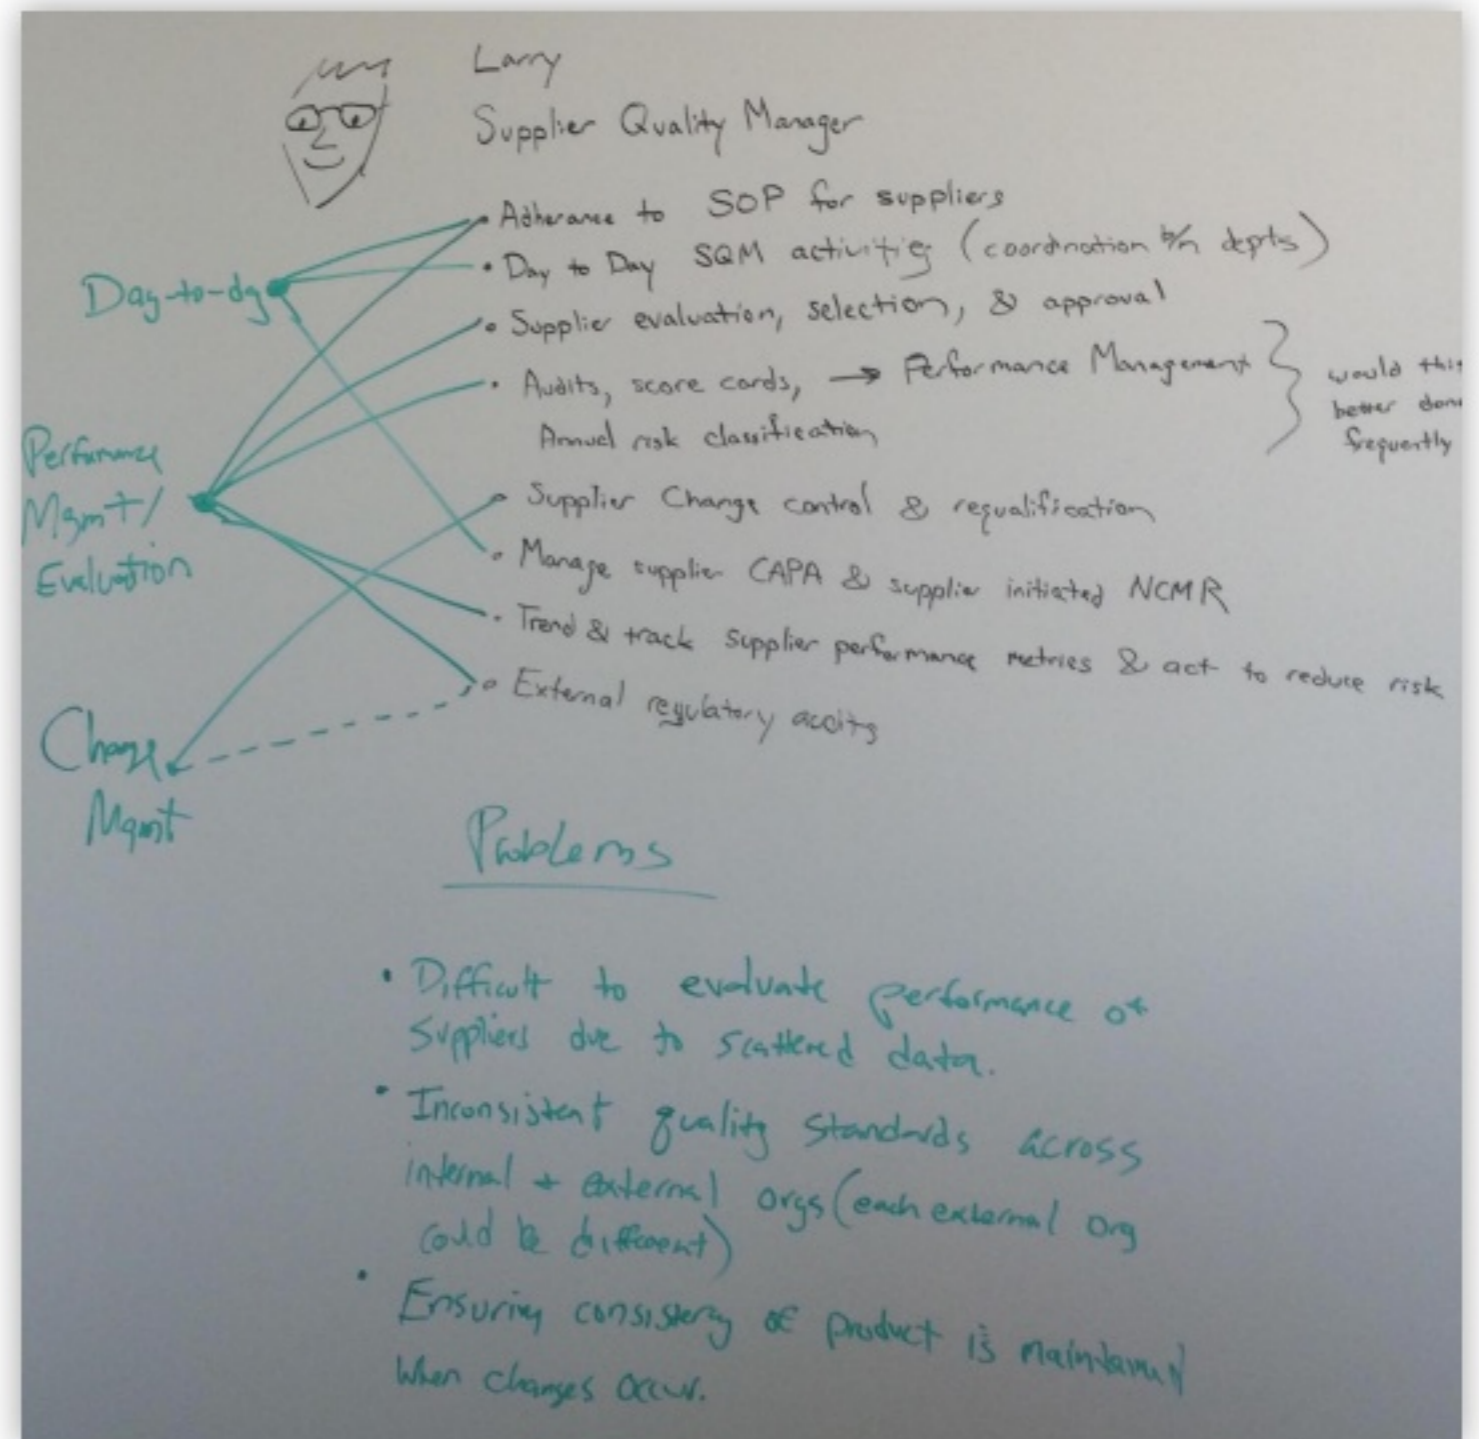 Larry
Supplier Quality Manager
• Adherance to SOP for suppliers
• Day to Day SQM activities (coordination b/n depts)
• Supplier evaluation, selection, & approval
• Audits, score cards, → Performance Management
Annual risk classification
would this
better done
frequently
• Supplier Change control & requalification
• Manage supplier CAPA & supplier initiated NCMR
• Trend & track supplier performance metrics & act to reduce risk
• External regulatory audits
Day-to-day
Performance
Mgmt/
Evaluation
Change
Mgmt
Problems
• Difficult to evaluate performance of
suppliers due to scattered data.
• Inconsistent quality standards across
internal + external orgs (each external org
could be different)
• Ensuring consistency of product is maintained
when changes occur.